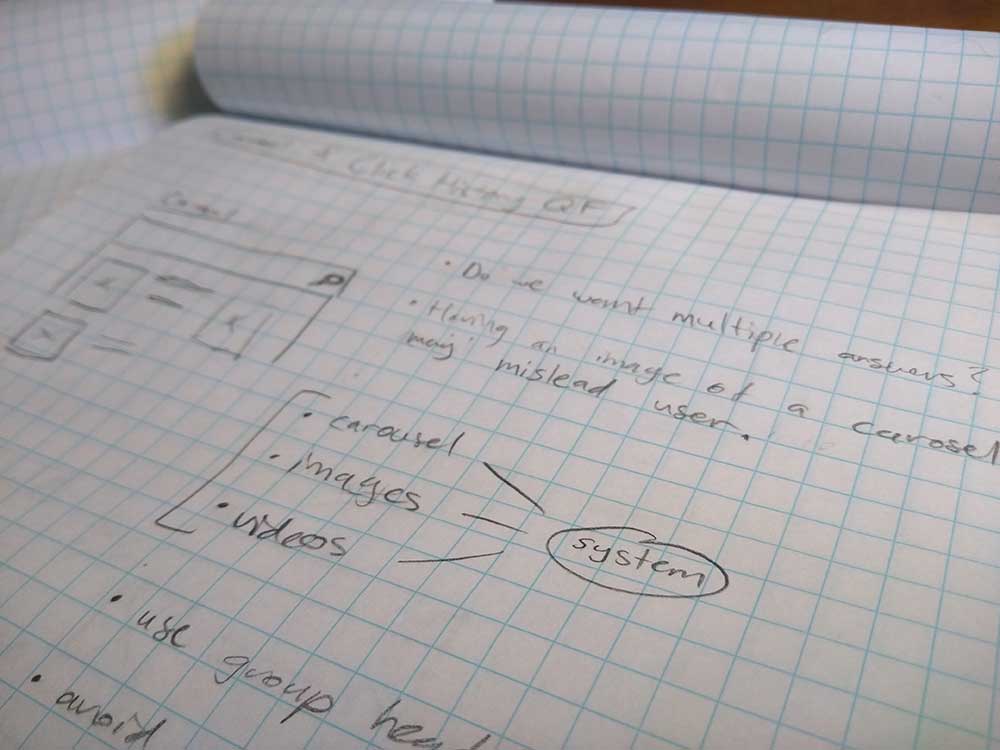 Click History QF
• Do we want multiple answers?
• Having an image of a carosel
may mislead user.
• carousel
• images
• videos
system
• use group
• avoid